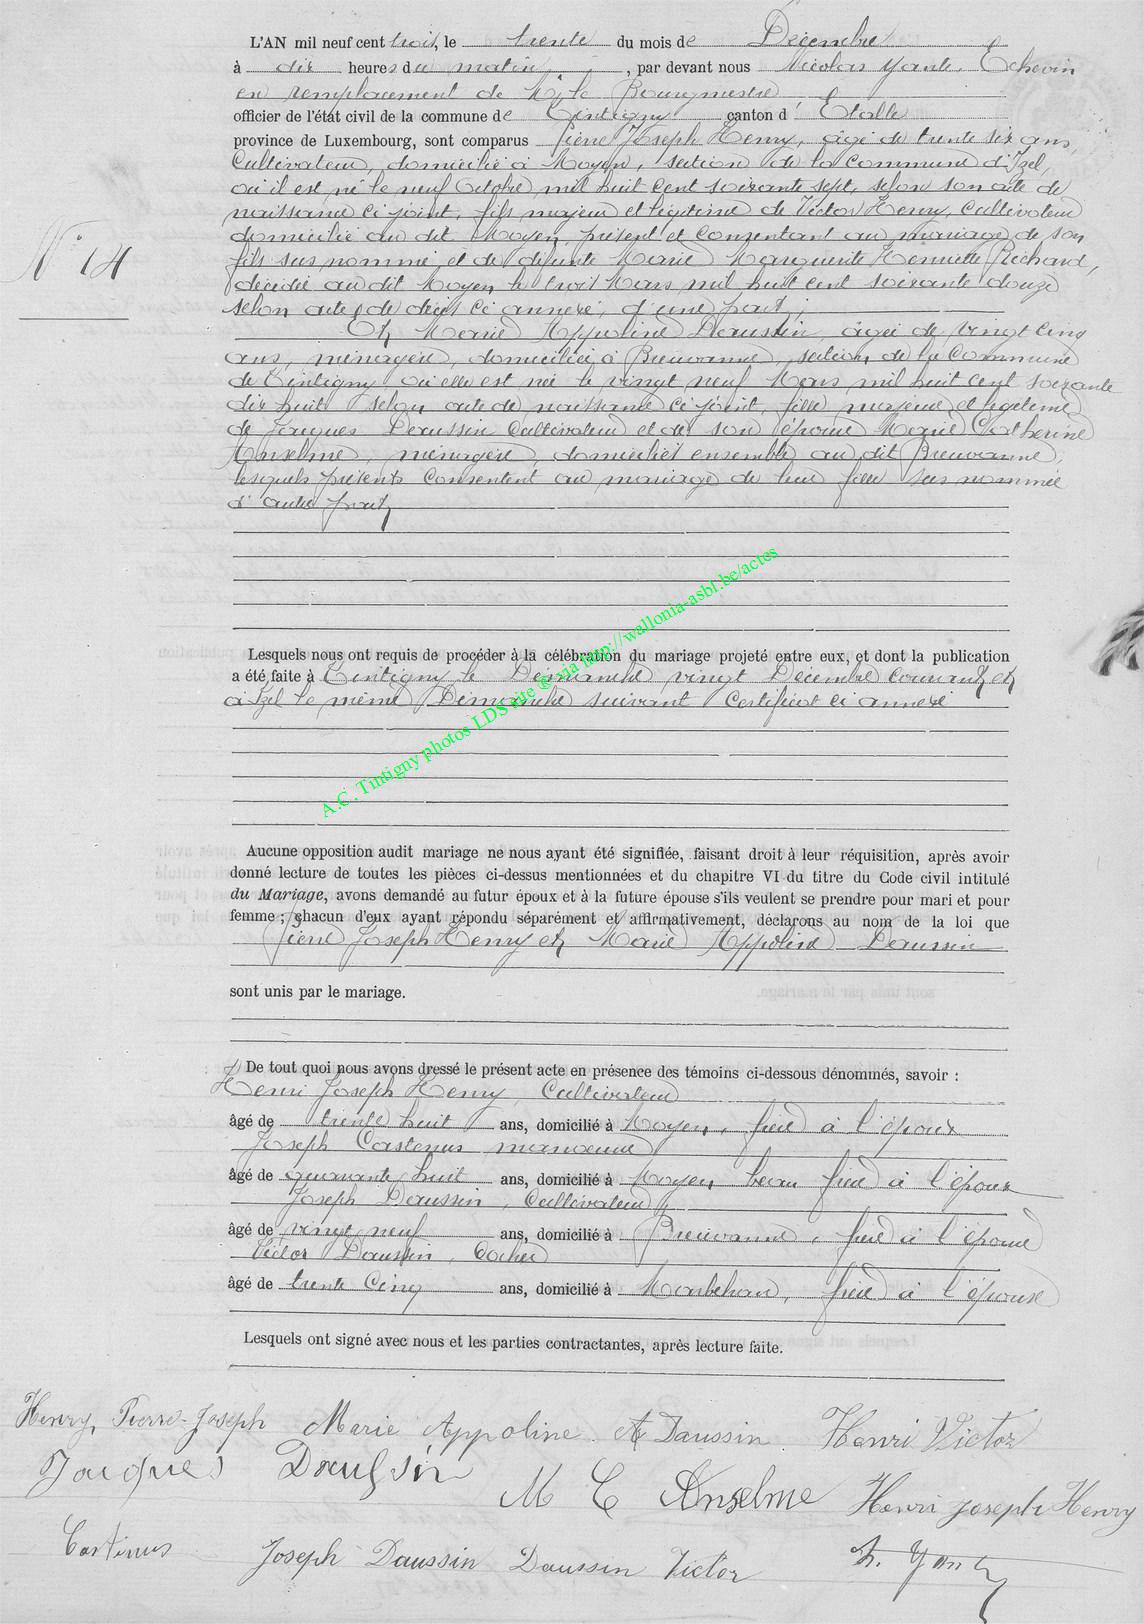 L'AN mil neuf cent trois, le trente du mois de Décembre
à dix heures du matin, par devant nous Nicolas Yante, Echevin
en remplacement de Mr le Bourgmestre
officier de l'état civil de la commune de Tintigny canton d' Etalle
province de Luxembourg, sont comparus Pierre Joseph Henry, âgé de trente six ans,
Cultivateur, domicilié à Moyen, section de la Commune d'Izel,
où il est né le neuf Octobre mil huit cent soixante sept, selon son acte de
naissance ci joint, fils majeur et légitime de Victor Henry, Cultivateur
domicilié au dit Moyen, présent et consentant au mariage de son
fils sus nommé et de défunte Marie Marguerite Henriette Richard,
décédée au dit Moyen le trois Mars mil huit cent soixante douze
selon acte de décès ci annexé, d'une part;
N° 14
Et Marie Appoline Daussin, âgée de vingt cinq
ans, ménagère, domiciliée à Breuvanne, section de la Commune
de Tintigny, où elle est née le vingt neuf Mars mil huit cent soixante
dix huit selon acte de naissance ci joint, fille majeure et légitime
de Jacques Daussin Cultivateur et de son épouse Marie Catherine
Anselme, ménagère, domiciliés ensemble au dit Breuvanne,
lesquels présents consentent au mariage de leur fille sus nommée
d'autre part
Lesquels nous ont requis de procéder à la célébration du mariage projeté entre eux, et dont la publication
a été faite à Tintigny le Dimanche vingt Décembre courant et
à Izel le même Dimanche suivant Certificat ci annexé
A.C. Tintigny photos LDS site ® via http://wallonia-asbl.be/actes
Aucune opposition audit mariage ne nous ayant été signifiée, faisant droit à leur réquisition, après avoir
donné lecture de toutes les pièces ci-dessus mentionnées et du chapitre VI du titre du Code civil intitulé
du Mariage, avons demandé au futur époux et à la future épouse s'ils veulent se prendre pour mari et pour
femme ; chacun d'eux ayant répondu séparément et affirmativement, déclarons au nom de la loi que
Pierre Joseph Henry et Marie Appoline Daussin
sont unis par le mariage.
De tout quoi nous avons dressé le présent acte en présence des témoins ci-dessous dénommés, savoir :
Henri Joseph Henry Cultivateur
âgé de trente huit ans, domicilié à Moyen, frère à l'époux
Joseph Castenus manoeuvre
âgé de quarante huit ans, domicilié à Moyen beau frère à l'époux
Joseph Daussin, Cultivateur
âgé de vingt neuf ans, domicilié à Breuvanne, frère à l'épouse
Victor Daussin, Cocher
âgé de trente Cinq ans, domicilié à Marbehan, frère à l'épouse
Lesquels ont signé avec nous et les parties contractantes, après lecture faite.
Henry, Pierre-Joseph Marie Appoline Daussin Henri Victor
Jacques Daussin M C Anselme Henri Joseph Henry
Joseph Daussin Daussin Victor N. Yante